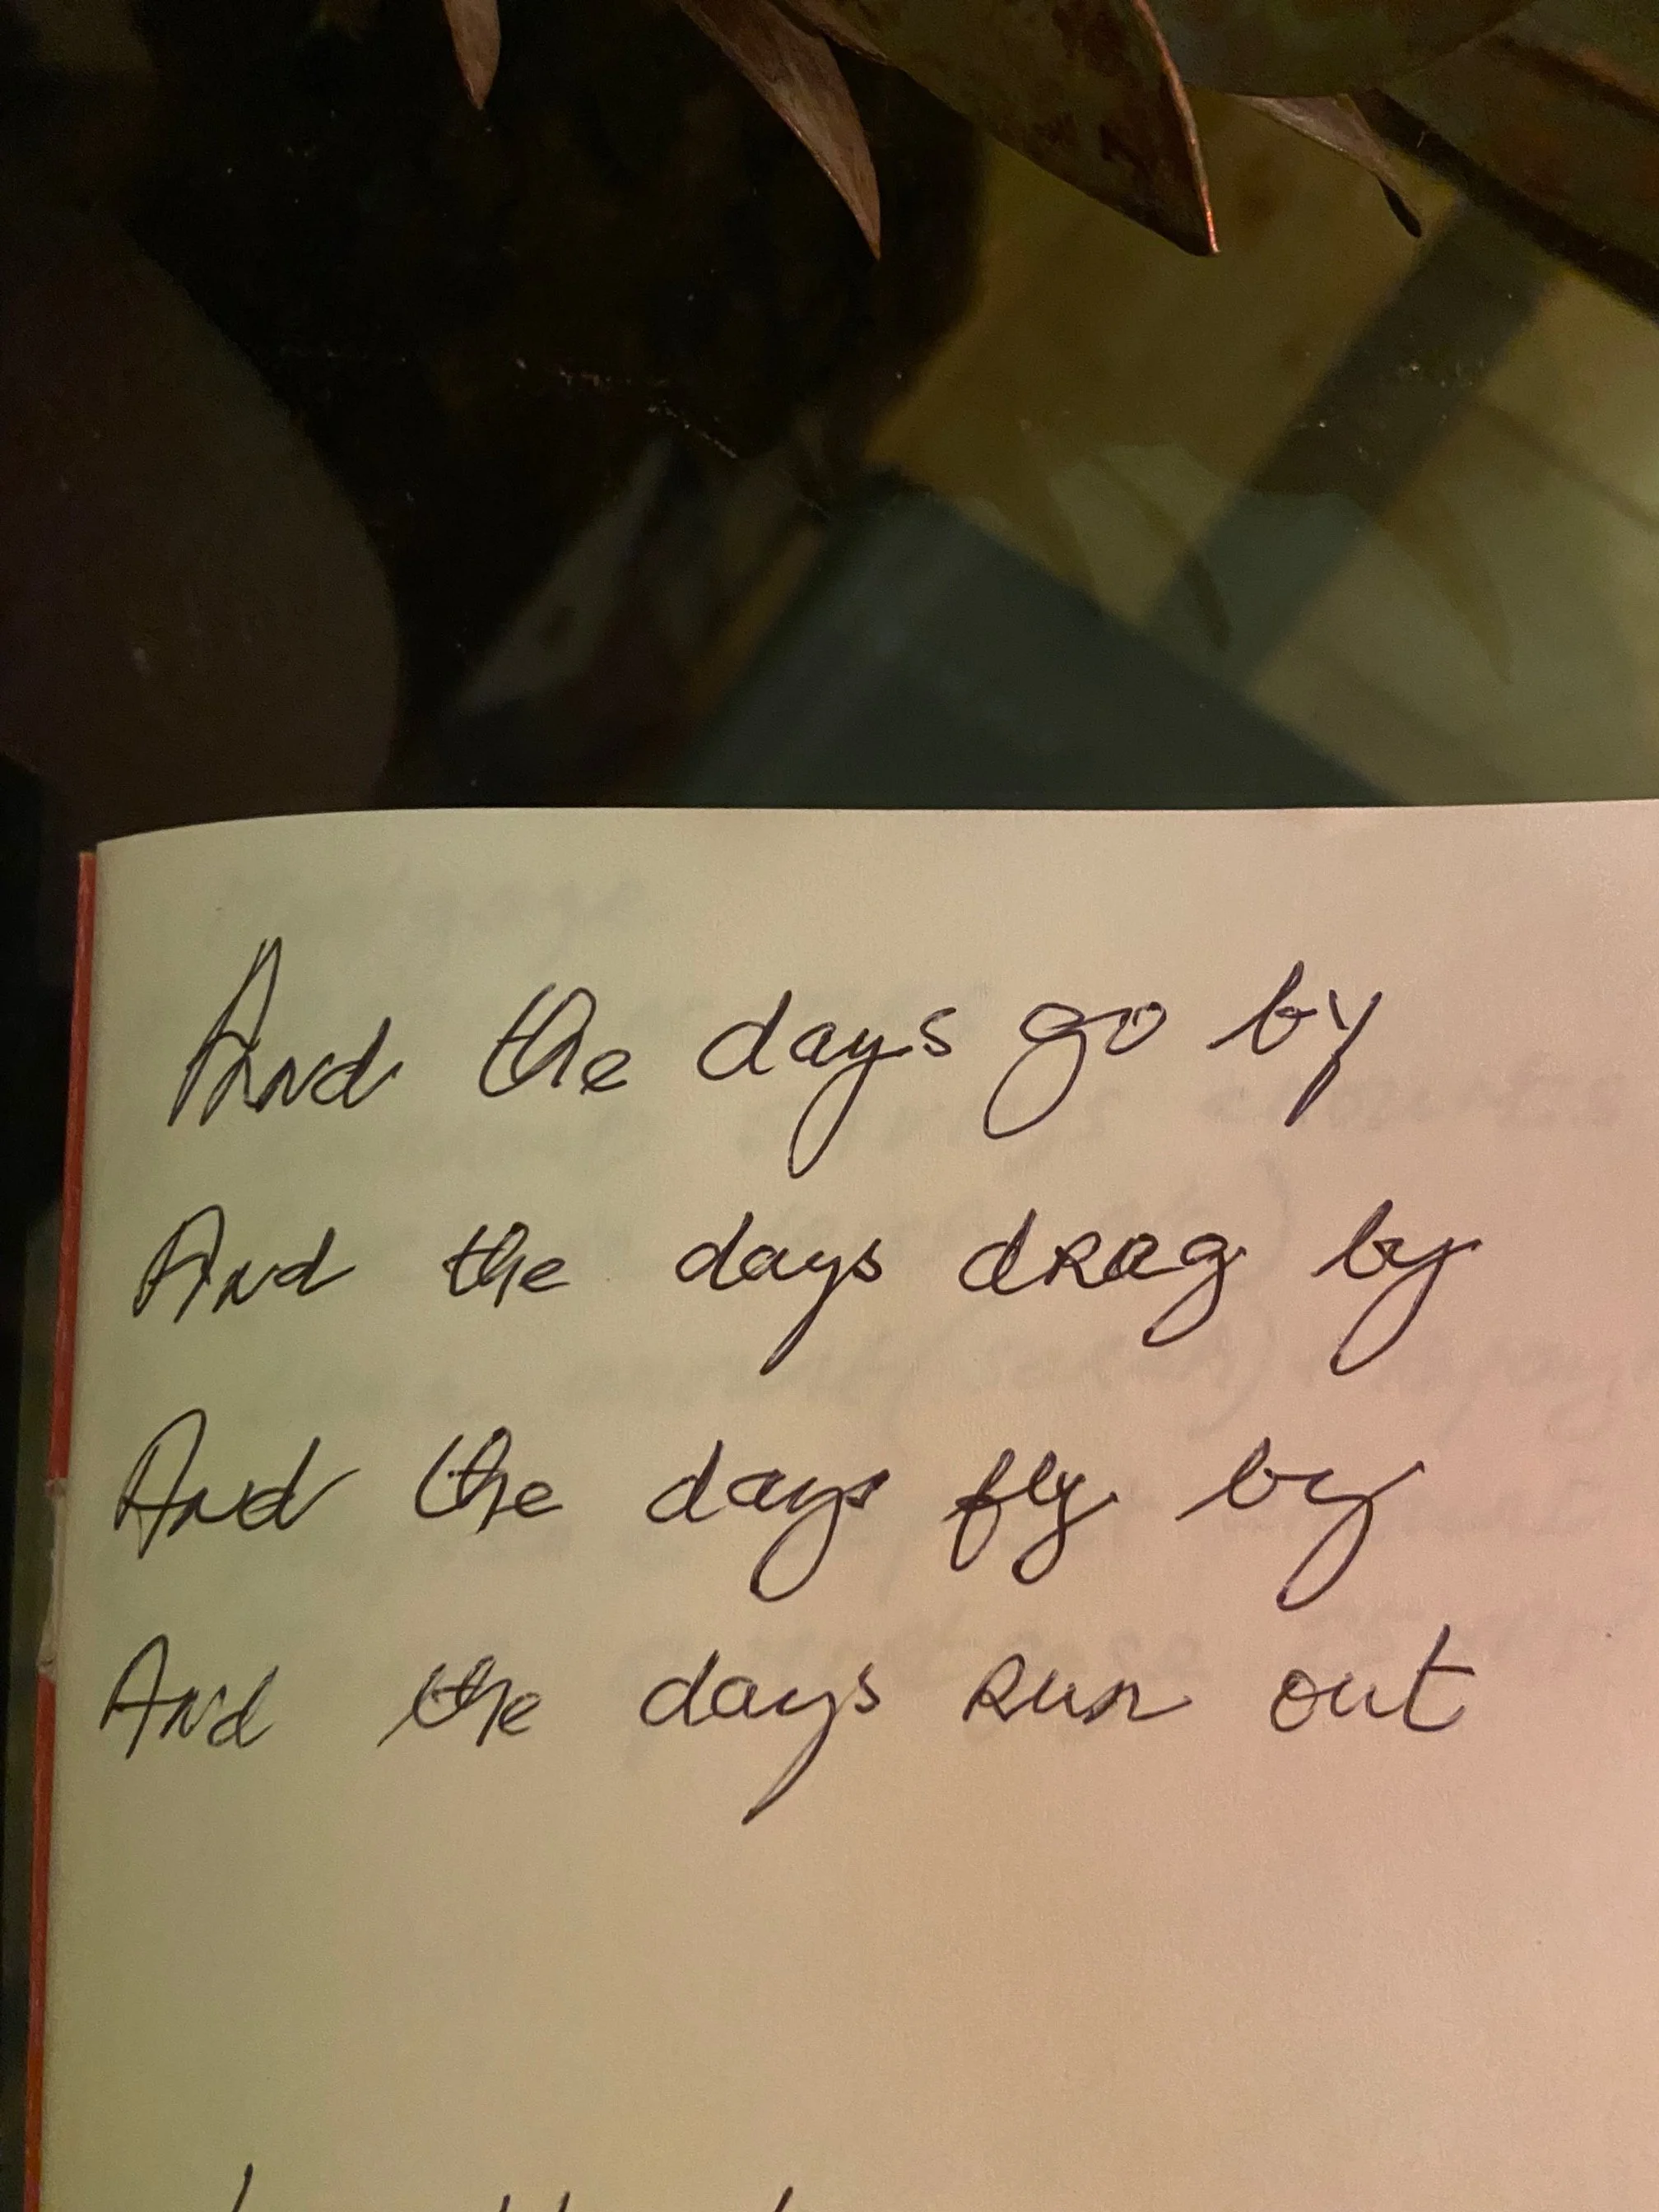 And the days go by
And the days drag by
And the days fly by
And the days run out